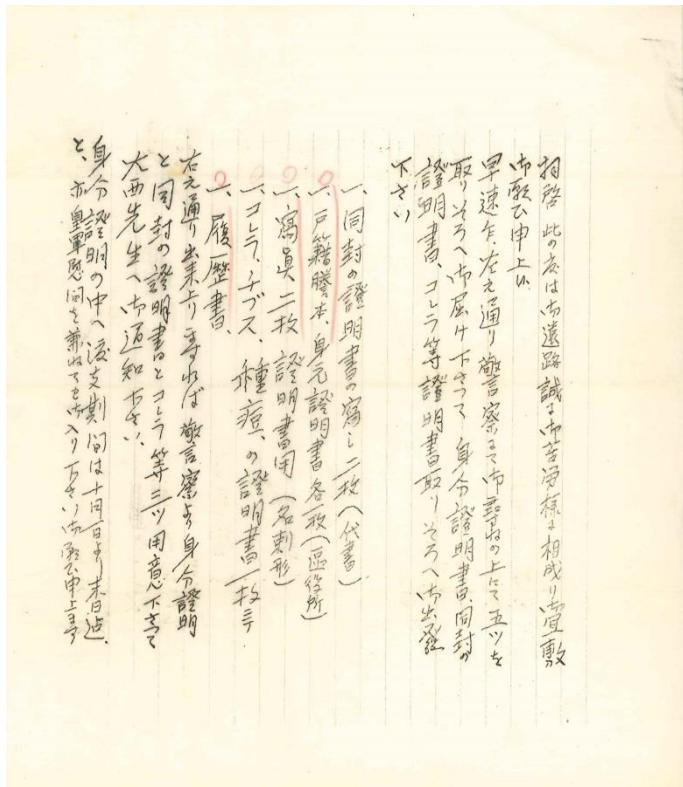 拝啓 此の度は御遠路誠に御苦労様に相成り宜敷
御願ひ申上候
早速乍、左之通り警察にて御尋ねの上にて五ツを
取りそろへ御届け下さつて身分證明書、同封の
證明書、コレラ等證明書取りそろへ御出發
下さい
一、同封の證明書の寫し二枚(代書)
一、戸籍謄本、身元證明書各一枚(區役所)
一、寫真二枚 證明書用(名刺形)
一、コレラ、チブス、種痘、の證明書一枚ヅヽ
一、履歴書、
右之通り出来上りますれば警察より身分證明
と同封の證明書とコレラ等三ツ用意下さつて
大西先生へ御通知下さい、
身分證明の中へ渡支期間は十月一日より末日迠、
と、亦皇軍慰問を兼ねてと御入り下さい御願ひ申上ます